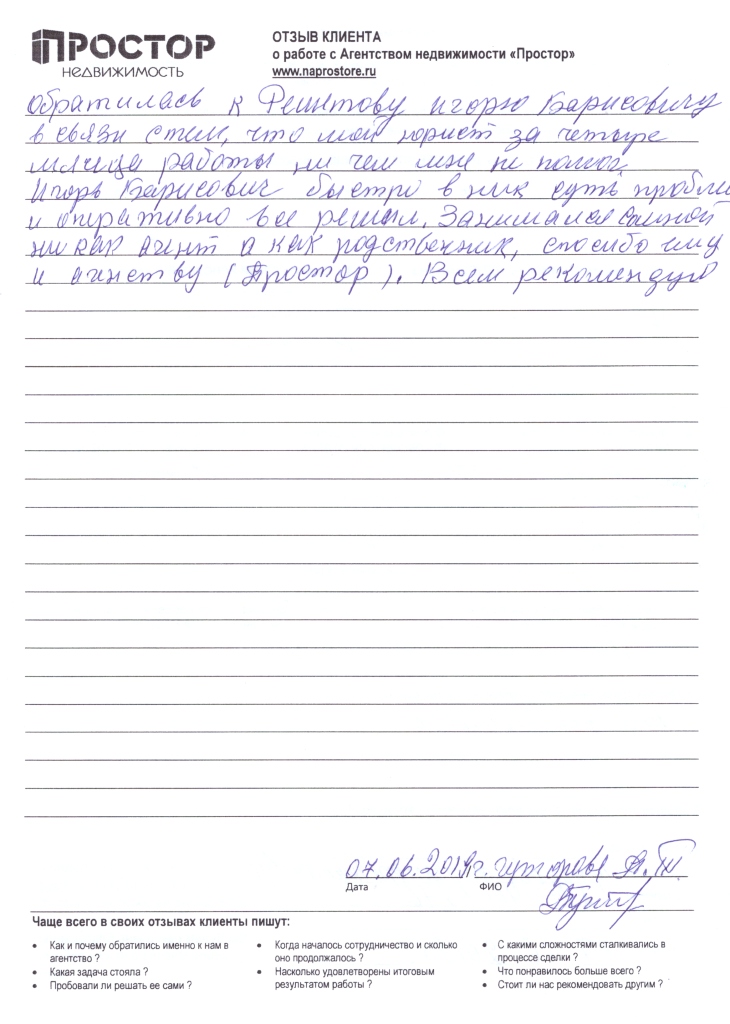 ПРОСТОР
НЕДВИЖИМОСТЬ
ОТЗЫВ КЛИЕНТА
о работе с Агентством недвижимости «Простор»
www.naprostore.ru
обратилась к Решетову игорю Барисовичу
в связи стем, что мой юрист за четыре
месяца работы ни чем мне не помог
Игорь Барисович быстро в ник суть пробле
и оперативно все решил. Занимался самной
ни как агент а как родственник, спосибо ему
и агенству (Простор). Всем рекомендую
07.06.2019г.
Дата
ФИО
Чаще всего в своих отзывах клиенты пишут:
• Как и почему обратились именно к нам в агентство ?
• Какая задача стояла ?
• Пробовали ли решать ее сами ?
• Когда началось сотрудничество и сколько оно продолжалось ?
• Насколько удовлетворены итоговым результатом работы ?
• С какими сложностями сталкивались в процессе сделки ?
• Что понравилось больше всего ?
• Стоит ли нас рекомендовать другим ?